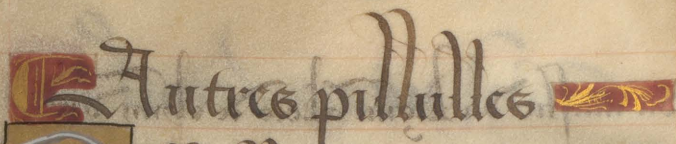 Autres pillulles